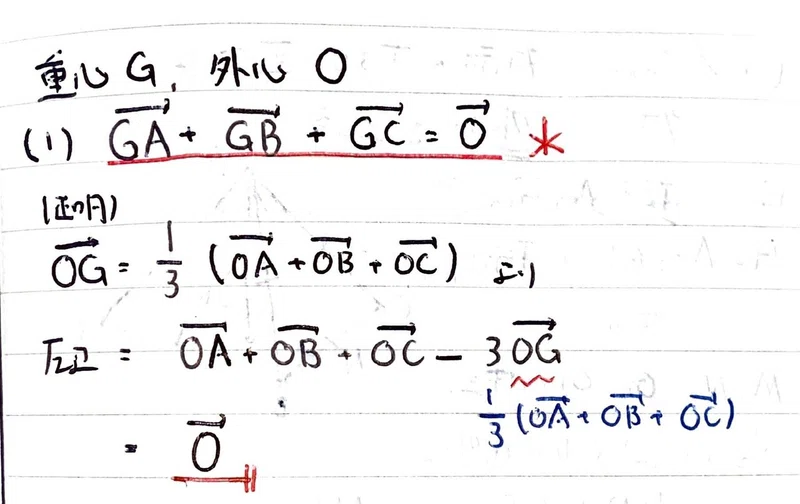 重心 G, 外心 O
(1) $\overrightarrow{GA} + \overrightarrow{GB} + \overrightarrow{GC} = \vec{0}$ *
(証明)
$\overrightarrow{OG} = \frac{1}{3} (\overrightarrow{OA} + \overrightarrow{OB} + \overrightarrow{OC})$ より
左辺 = $\overrightarrow{OA} + \overrightarrow{OB} + \overrightarrow{OC} - 3\overrightarrow{OG}$
$\frac{1}{3} (\overrightarrow{OA} + \overrightarrow{OB} + \overrightarrow{OC})$
= $\vec{0}$